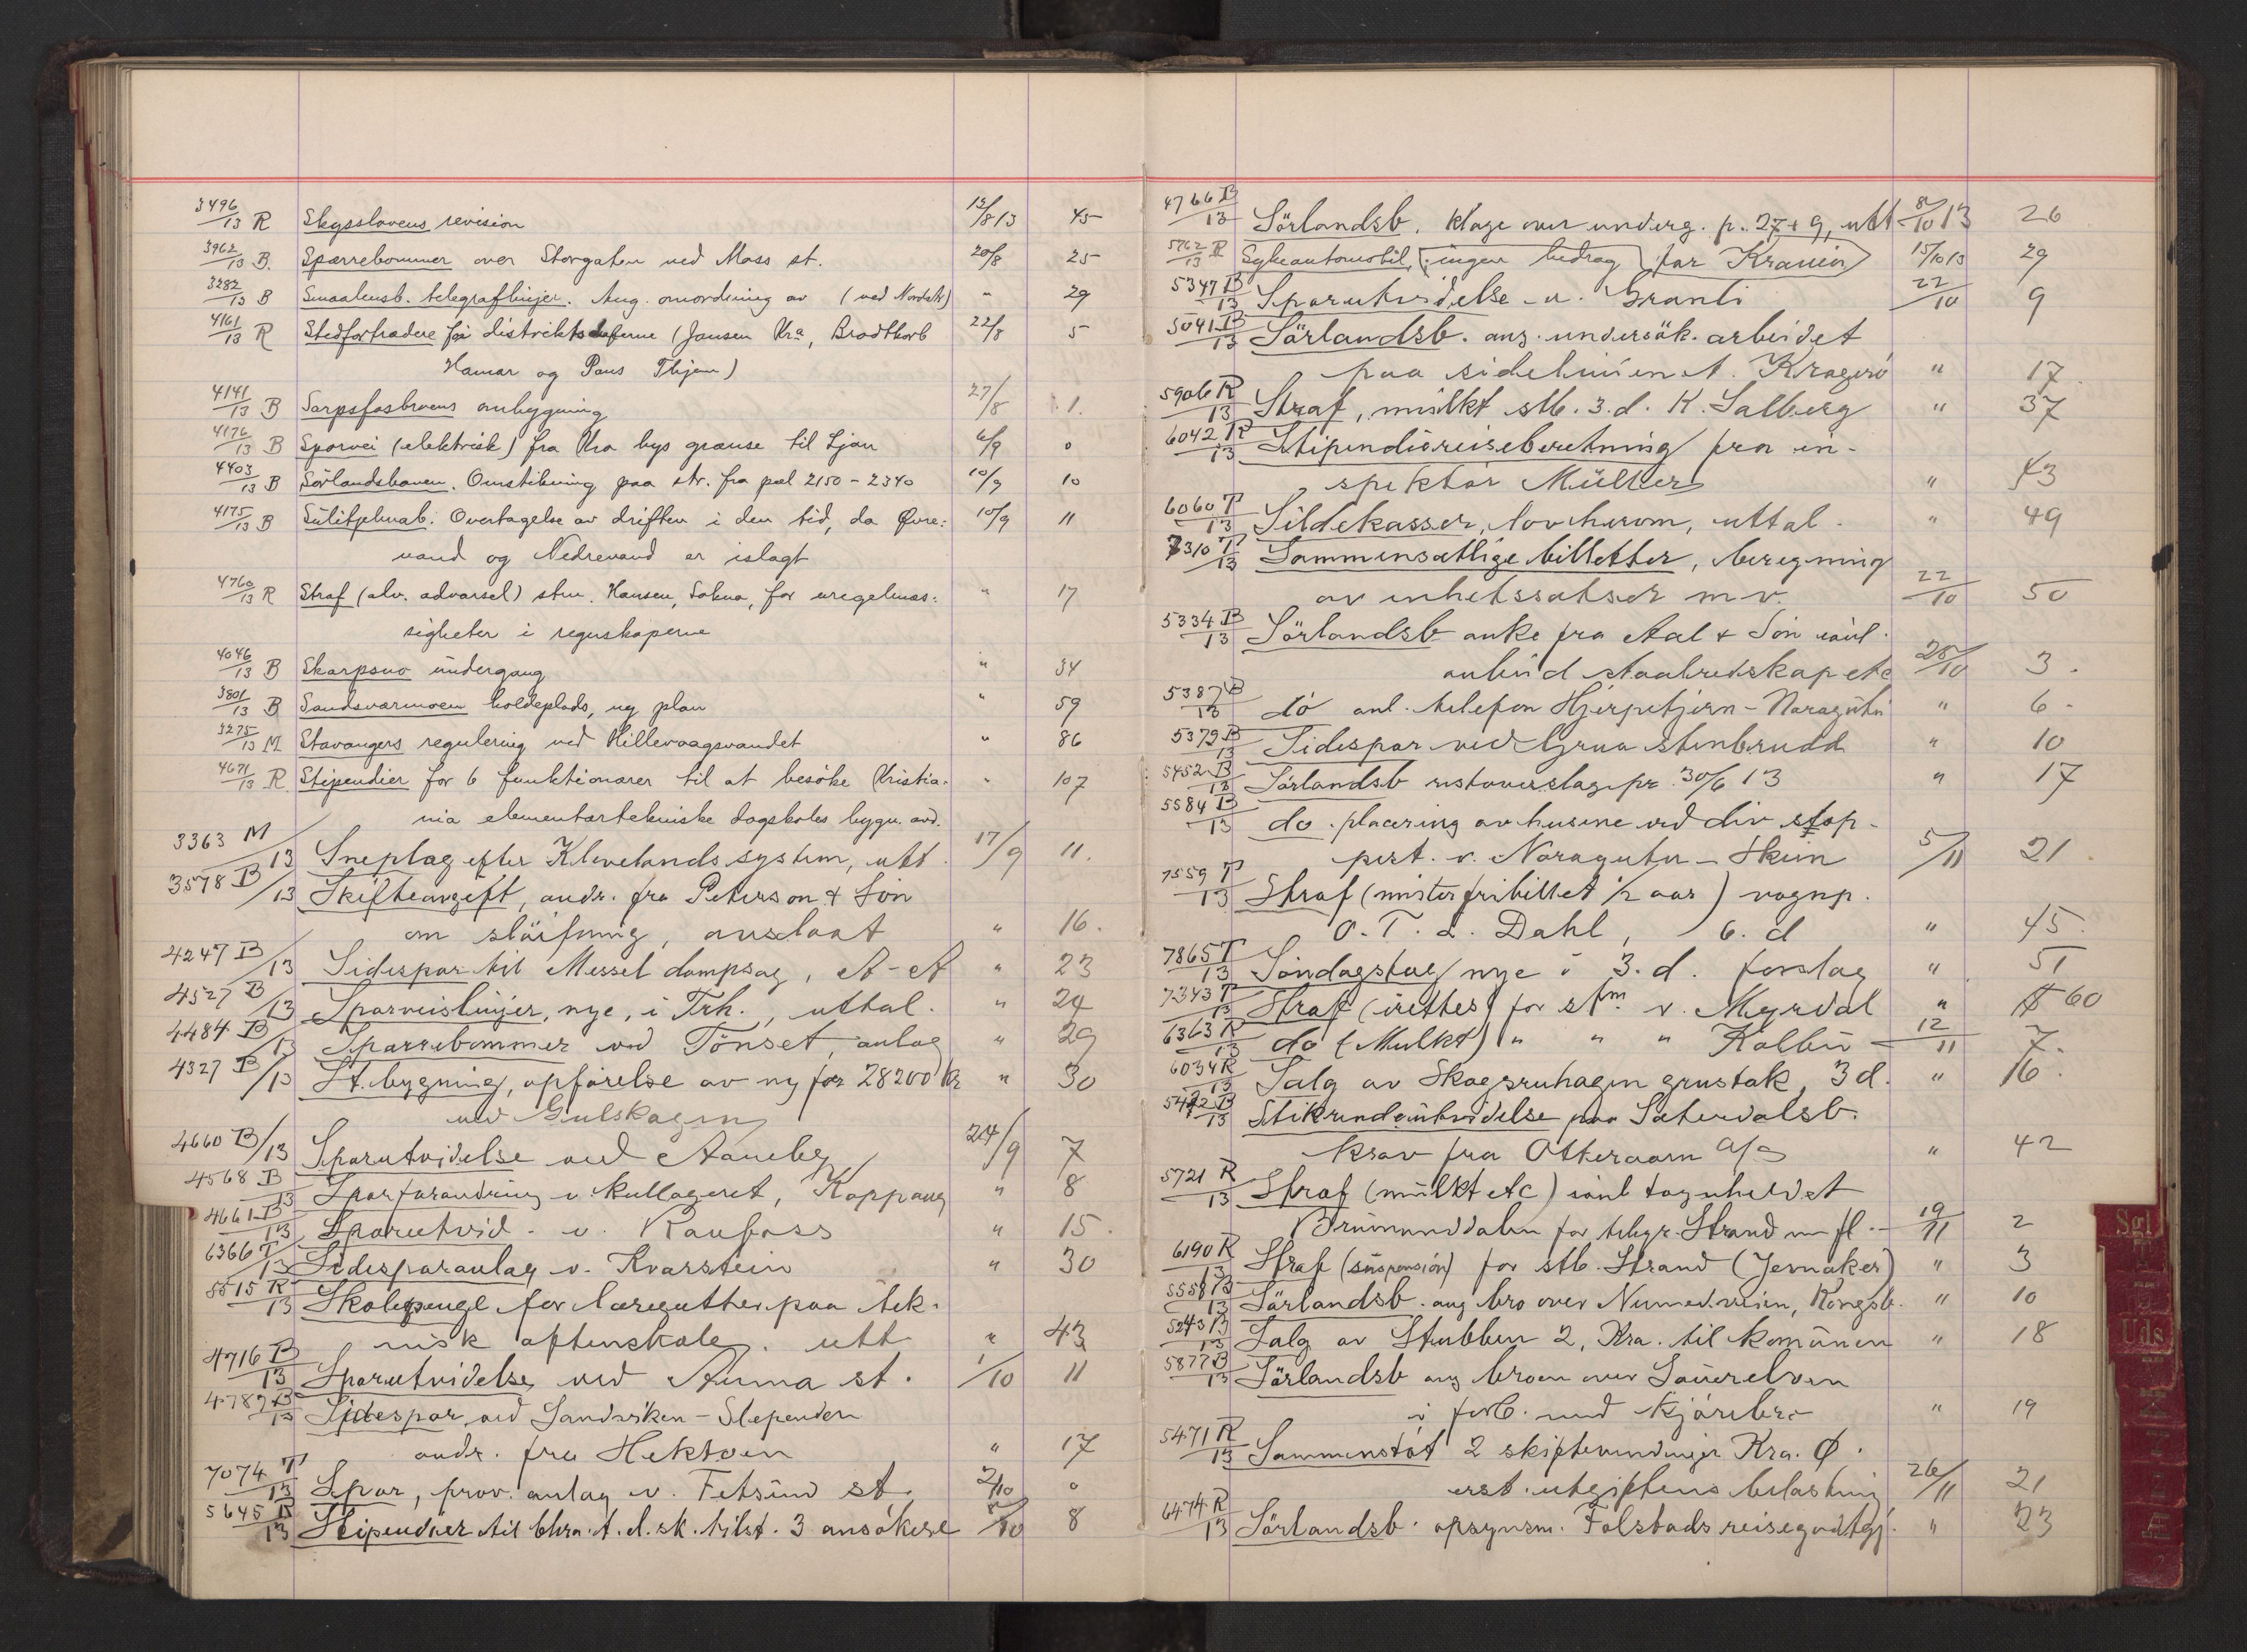 3496/13 R Skysslovens revision 13/8 13 45
3962/13 B. Spærrebommer over Storgaten ved Moss st. 20/8 25
3282/13 B Smaalensb. telegraflinjer. Ang. omordning av (ved Nordstr) " 29
4161/13 R Stedfortrædere for distriktscheferne (Jansen Kra, Brodtkorb 22/8 5
Hamar og Paus Thjem)
4141/13 B Sarpsfosbroens ombygning 27/8 1.
4176/13 B Sporvei (elektrisk) fra Kra bys grænse til Ljan 6/9 0
4403/13 B Sörlandsbanen. Omstikning paa str. fra pæl 2150 - 2340 10/9 10
4175/13 B Sulitjelmab: Overtagelse av driften i den tid, da Øvre: 10/9 11
vand og Nedrevand er islagt
4760/13 R Straf (alv. advarsel) stm. Hansen, Sokna, for uregelmæs: " 17
sigheter i regnskaperne
4046/13 B Skarpsno undergang " 34
3801/13 B Sandsværmoen holdeplads, ny plan " 59
3275/13 M Stavangers regulering ved Hillevaagsvandet " 86
4671/13 R Stipendier for 6 funktionærer til at besöke Kristia- " 107
nia elementærtekniske dagskoles bygn. avd.
3363 M/13 Sneplog efter Klevelands system, utt. 17/9 11.
3578 B/13 Skifteavgift, andr. fra Peterson & Sön
om slöifning, avslaat " 16.
4247 B/13 Sidespor til Messel dampsag, A-A " 23
4527 B/13 Sporveislinjer, nye, i Trh., uttal. " 24
4484 B/13 Spærrebommer ved Tönset, anlag " 29
4327 B/13 St. bygning, opförelse av ny for 28200 kr " 30
ved Gulskogen
4660 B/13 Sporutvidelse ved Aaneby 24/9 7
4568 B/13 Sporforandring v. kullageret, Koppang " 8
4661 B/13 Sporutvid. v. Raufoss " 15.
6366 T/13 Sidesporanlæg v. Kvarstein " 30
5515 R/13 Skolepenge for læregutter paa tek-
nisk aftenskole, utt " 43
4716 B/13 Sporutvidelse ved Auma st. 1/10 11
4789 B/13 Sidespor ved Sandviken - Slependen
andr. fra Hektoen " 17
7074 T/13 Spor, prov. anlæg v. Fetsund st. 2/10 0
5645 R/13 Stipendier til Chra. t. d. sk. tilst. 3 ansökere 8/10 8
4766 B/13 Sörlandsb. klage over underg. p. 27+9, utt 8/10 13 26
5762 R/13 Sykeautomobil, ingen bedrag for Kranier 15/10 13 29
5347 B/13 Sporutvidelse v. Granli 22/10 9
5041 B/13 Sörlandsb. ang. undersök. arbeidet
paa sidelinien t. Kragerö " 17.
5906 R/13 Straf, mulkt stb. 3. d. K. Salberg " 37
6042 R/13 Stipendiereiseberetning fra in-
spektör Müller " 43
6060 T/13 Sildekasser, uttal. " 49
7310 T/13 Sammensætlige billetter, beregning
av enhetssatser m.v. 22/10 50
5334 B/13 Sörlandsb anke fra Aal & Sön
anbud staalredskap etc 25/10 3.
5387 B/13 do anl. telefon Hjerpetjern - Naragutu " 6.
5379 B/13 Sidespor ved Grua stenbrudd " 10
5452 B/13 Sörlandsb restoverslag pr. 30/6 13 " 17
5584 B/13 do. placering av husene ved div stop-
pest. v. Naragutu - Skien 5/11 21.
7559 T/13 Straf (mister fribillet 1/2 aar) vognp.
O. T. L. Dahl, 6. d " 45.
7865 T/13 Söndagstog nye i 3. d. forslag " 51
7343 T/13 Straf (irettes) for stm. v. Myrdal " 60
6363 R/13 do (Mulkt) " " " Kolbu 12/11 7.
6034 R/13 Salg av Skogsruhagen grustak, 3 d. " 16.
5442 B/13 Stikrendeutvidelse paa Sætersdalsb.
krav fra Otteraaen A/S " 42
5721 R/13 Straf (mulkt etc) toguheldet
Brumunddalen for telegr. Strand m fl. 19/11 2
6190 R/13 Straf (suspension) for stb. Strand (Jevnaker) " 3
5558 B/13 Sörlandsb. ang bro over Numed.veien, Kongsb. " 10
5243 B/13 Salg av Stubben 2, Kra. til komunen " 18
5877 B/13 Sörlandsb ang broen over Sauerelven
i forb. med kjörebro " 19
5471 R/13 Sammenstöt 2 skiftevendinger Kra. Ø.
erst. utgiftens belastning 26/11 21
6474 R/13 Sörlandsb. opsynsm. Folstads reisegodtgj. " 23
Sgl
Uds